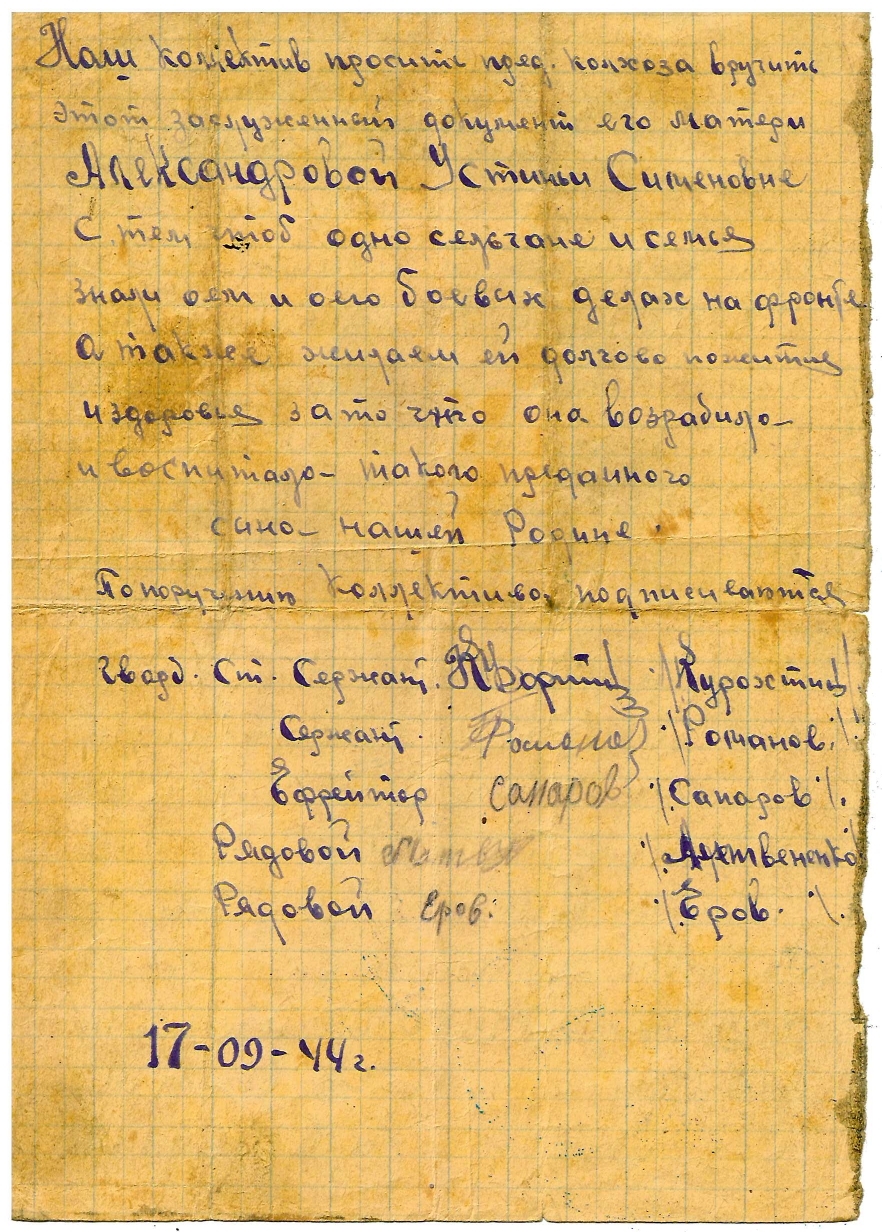 Наш коллектив просить пред. колхоза вручить
этот заслуженный документ его матери
Александровой Устиньи Сименовне
С тем чтоб одно сельчане и семья
знали оем и оего боевых делах на фронте
А также жилаем ей долгово пожитие
и здоровья за то что она возрабило
и воспитало такого преданного
сино нашей Родине.
По поручению коллектива подписиваются
Гвард. Ст. Сержант. /Курохтин/
Сержант. Романов /Романов/
Ефрейтор Сапаров /Сапаров/.
Рядовой
Рядовой Еров. /Еров./.
17-09-44 г.